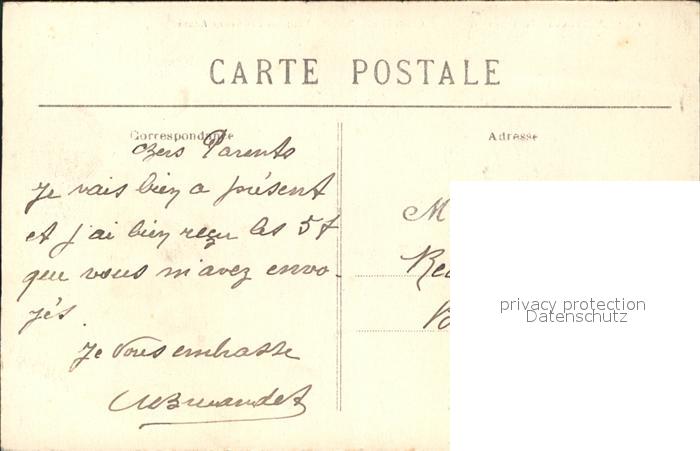 CARTE POSTALE
Correspondance
Adresse
Chers Parents
Je vais bien a présent
et j'ai bien reçu les 5 f
que vous m'avez envo-
yés.
Je vous embrasse
M
privacy protection
Datenschutz